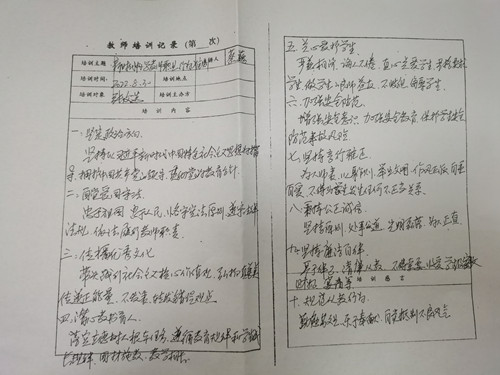 教师培训记录（第 次）
培训主题
培训时间： 2022.8.30
培训地点
培训对象
培训主办方
培训内容
一、坚定政治方向
坚持以习近平新时代中国特色社会主义思想为指
导，拥护中国共产党领导，贯彻党的教育方针
二、自觉爱国守法
忠于祖国，忠于人民，恪守宪法原则，遵守法律
法规，依法履行教师职责
三、传播优秀文化
带头践行社会主义核心价值观，弘扬真善美
传递正能量，不发表、转发错误观点
四、潜心教书育人
落实立德树人根本任务，遵循教育规律和学生成
长规律，因材施教，教学相长
五、关心爱护学生
严慈相济，诲人不倦，真心关爱学生，严格要求
学生，做学生良师益友，不歧视、侮辱学生
六、加强安全防范
增强安全意识，加强安全教育，保护学生安全
防范事故风险
七、坚持言行雅正
为人师表，以身作则，举止文明，作风正派，自重
自爱，不得与学生发生任何不正当关系
八、秉持公正诚信
坚持原则，处事公道，光明磊落，为人正直
九、坚守廉洁自律
严于律己，清廉从教，不得索要、收受学生及家长
财物
培训感言
十、规范从教行为
勤勉敬业，乐于奉献，自觉抵制不良风气